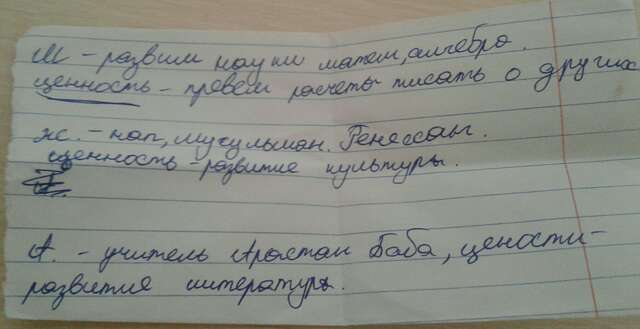 М - развит науки матем, алгебра.
ценность - превем расчеты писать о других
ж. - нап, мусульман. Ренессанс.
ценность - развитие культуры.
А. - учитель Арастан Баба, цености -
развитие литературы.